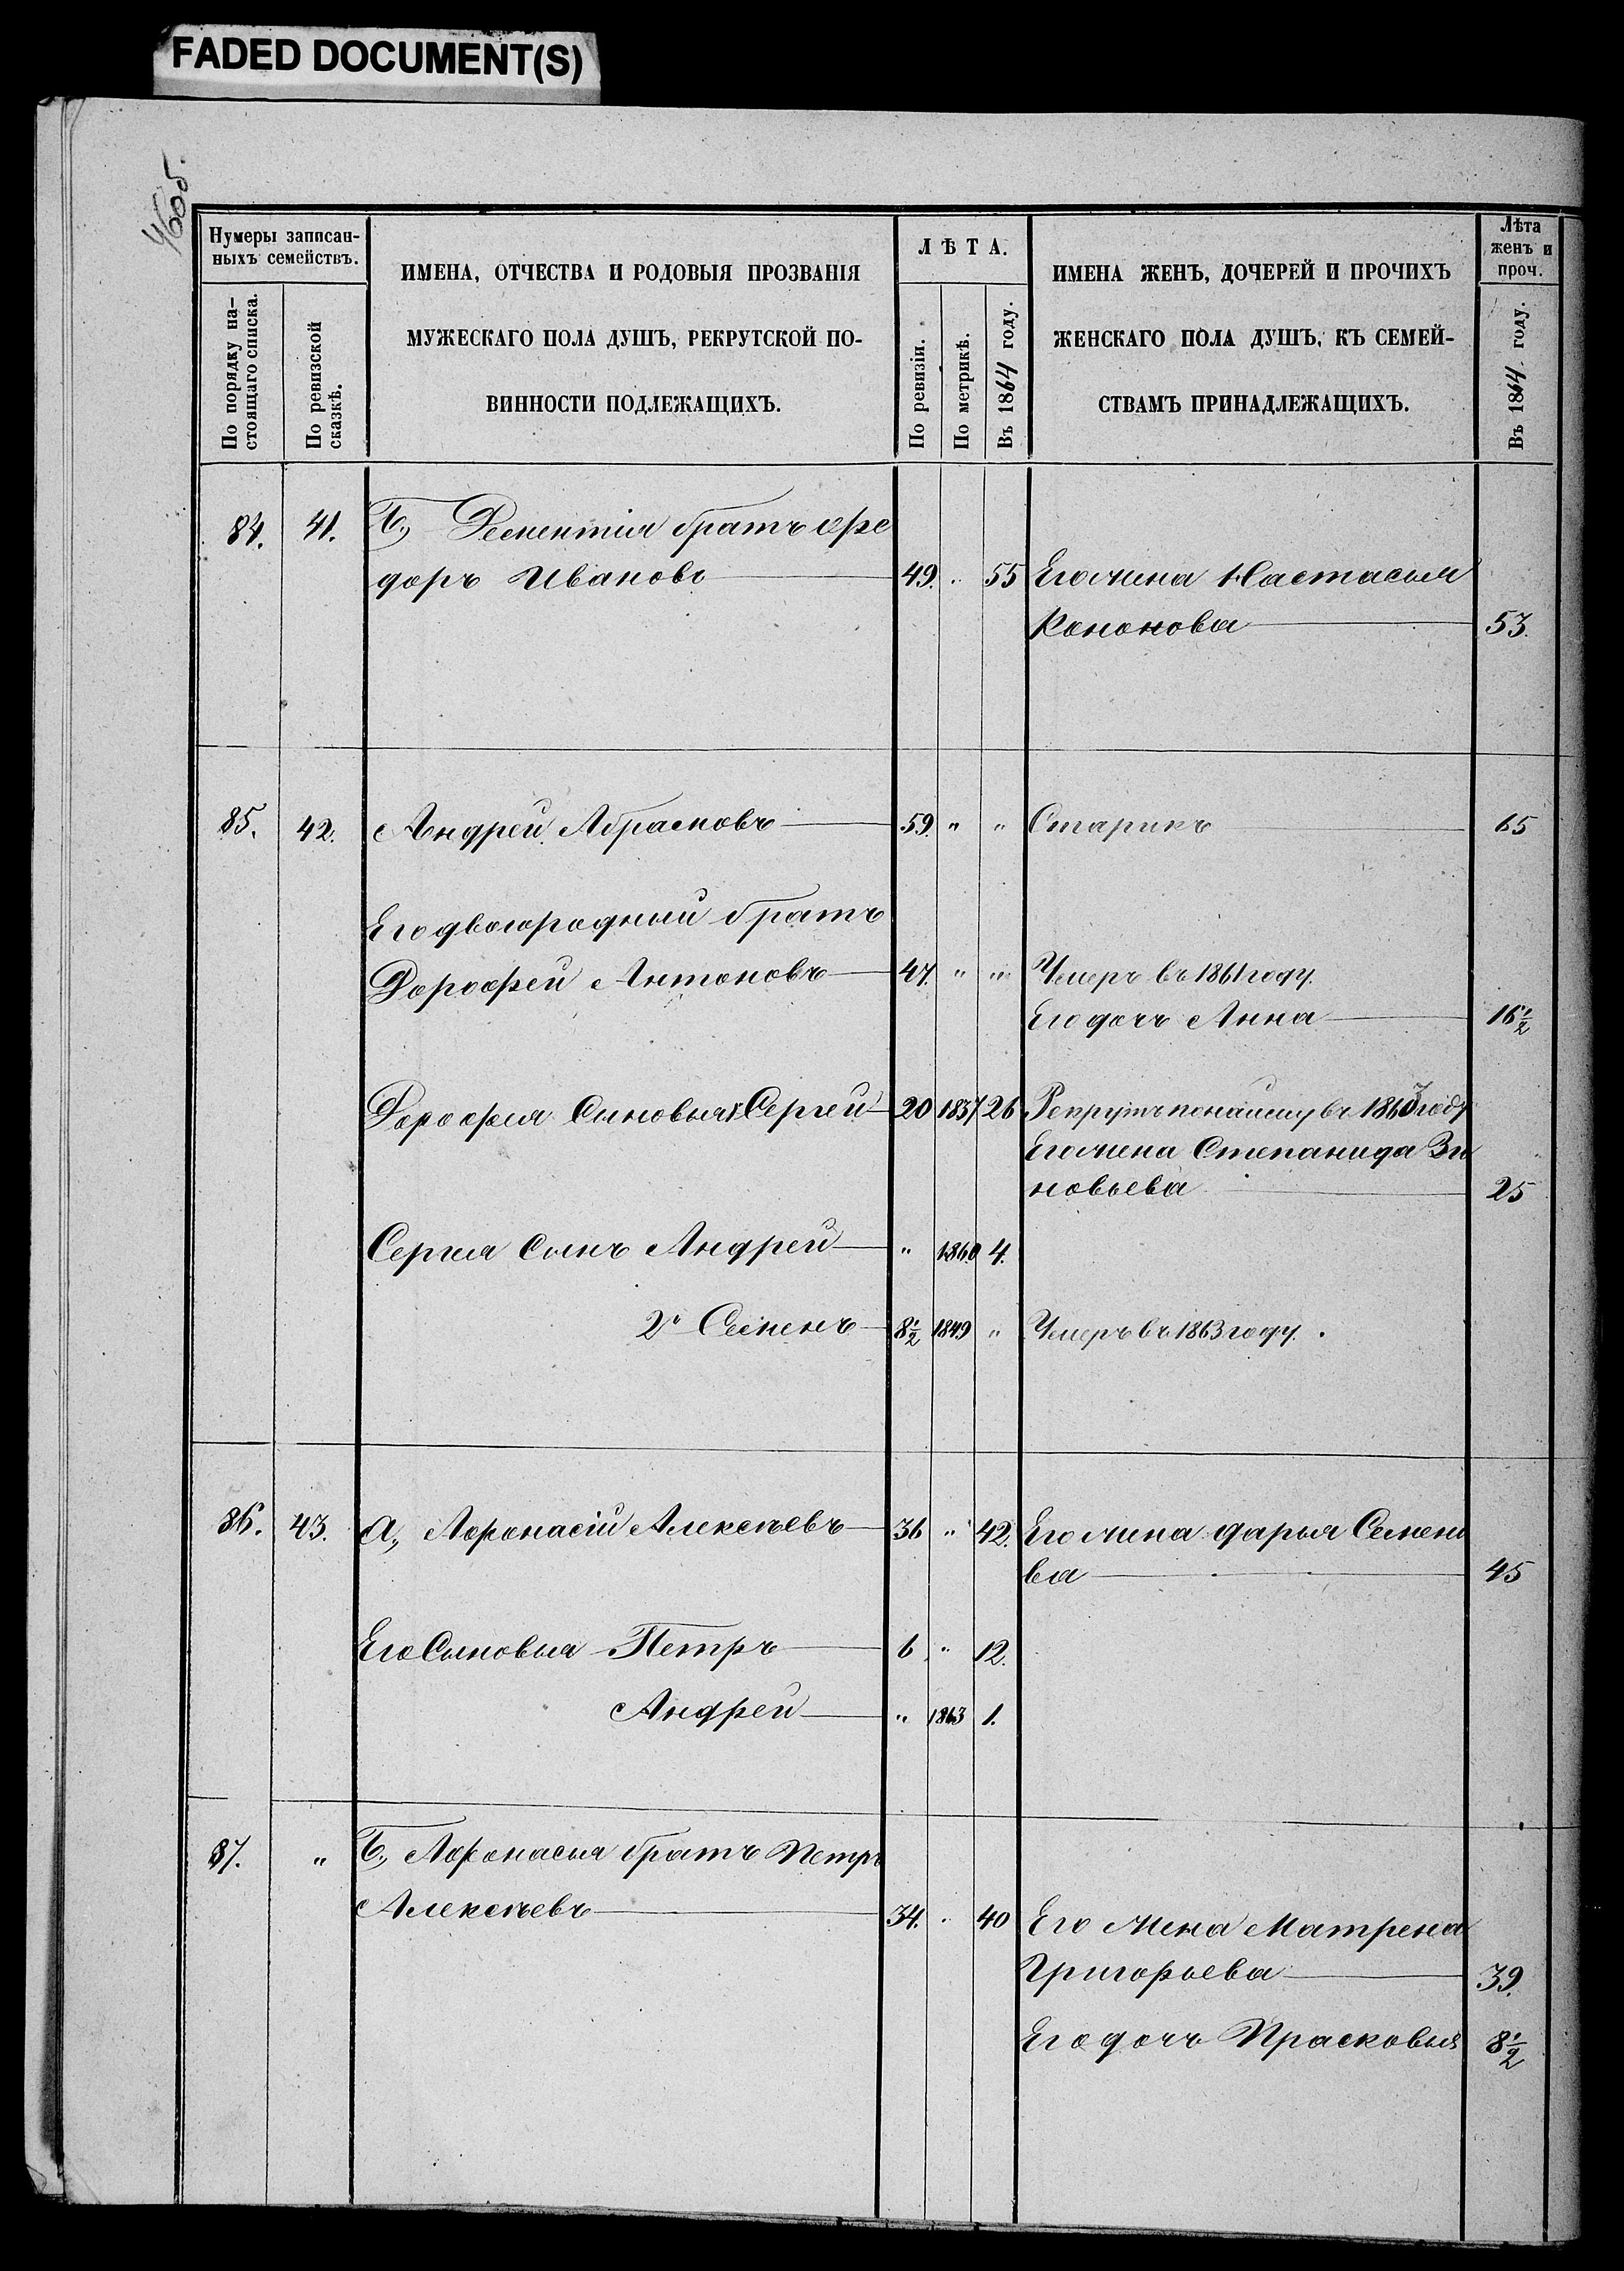 FADED DOCUMENT(S)
4605.
Нумеры записан-
ныхъ семействъ.
По порядку на-
стоящаго списка.
По ревизской
сказкѣ.
ИМЕНА, ОТЧЕСТВА И РОДОВЫЯ ПРОЗВАНІЯ
МУЖЕСКАГО ПОЛА ДУШЪ, РЕКРУТСКОЙ ПО-
ВИННОСТИ ПОДЛЕЖАЩИХЪ.
ЛѢТА.
По ревизіи.
По метрикѣ.
Въ 1864 году.
ИМЕНА ЖЕНЪ, ДОЧЕРЕЙ И ПРОЧИХЪ
ЖЕНСКАГО ПОЛА ДУШЪ, КЪ СЕМЕЙ-
СТВАМЪ ПРИНАДЛЕЖАЩИХЪ.
Лѣта
женъ и
проч.
Въ 1864 году.
84. 41. Б., Дементія братъ Фе
доръ Ивановъ 49. " 55 Его жена Настасья
Кононова 53.
85. 42. Андрей Абрамовъ 59. " " Старикъ 65
Его двоюродный братъ
Дорофей Антоновъ 47. " " Умеръ въ 1861 году.
Его дочь Анна 16 1/2
Дорофея Сыновья 1 Сергей 20 1837 26 Рекрутъ по найму въ 1863 году
Его жена Степанида Зи
новьева 25
Сергея сынъ Андрей " 1860 4.
2й Семенъ 8 1/2 1849 " Умеръ въ 1863 году.
86. 43. А., Афонасій Алексѣевъ 36 " 42. Его жена Дарья Семено
ва 45
Его Сыновья Петръ 6 " 12.
Андрей " 1863 1.
87. " Б., Афонасья братъ Петръ
Алексѣевъ 34. " 40 Его жена Матрена
Григорьева 39.
Его дочь Прасковья 8 1/2